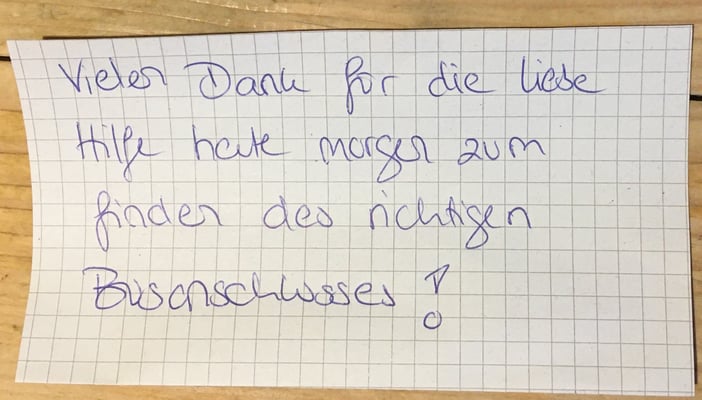 Vielen Dank für die liebe
Hilfe heute morgen zum
finden des richtigen
Busanschlusses!